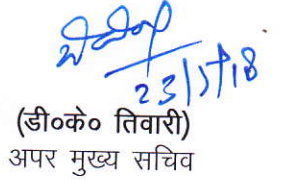 23/5/18
(डी०के० तिवारी)
अपर मुख्य सचिव